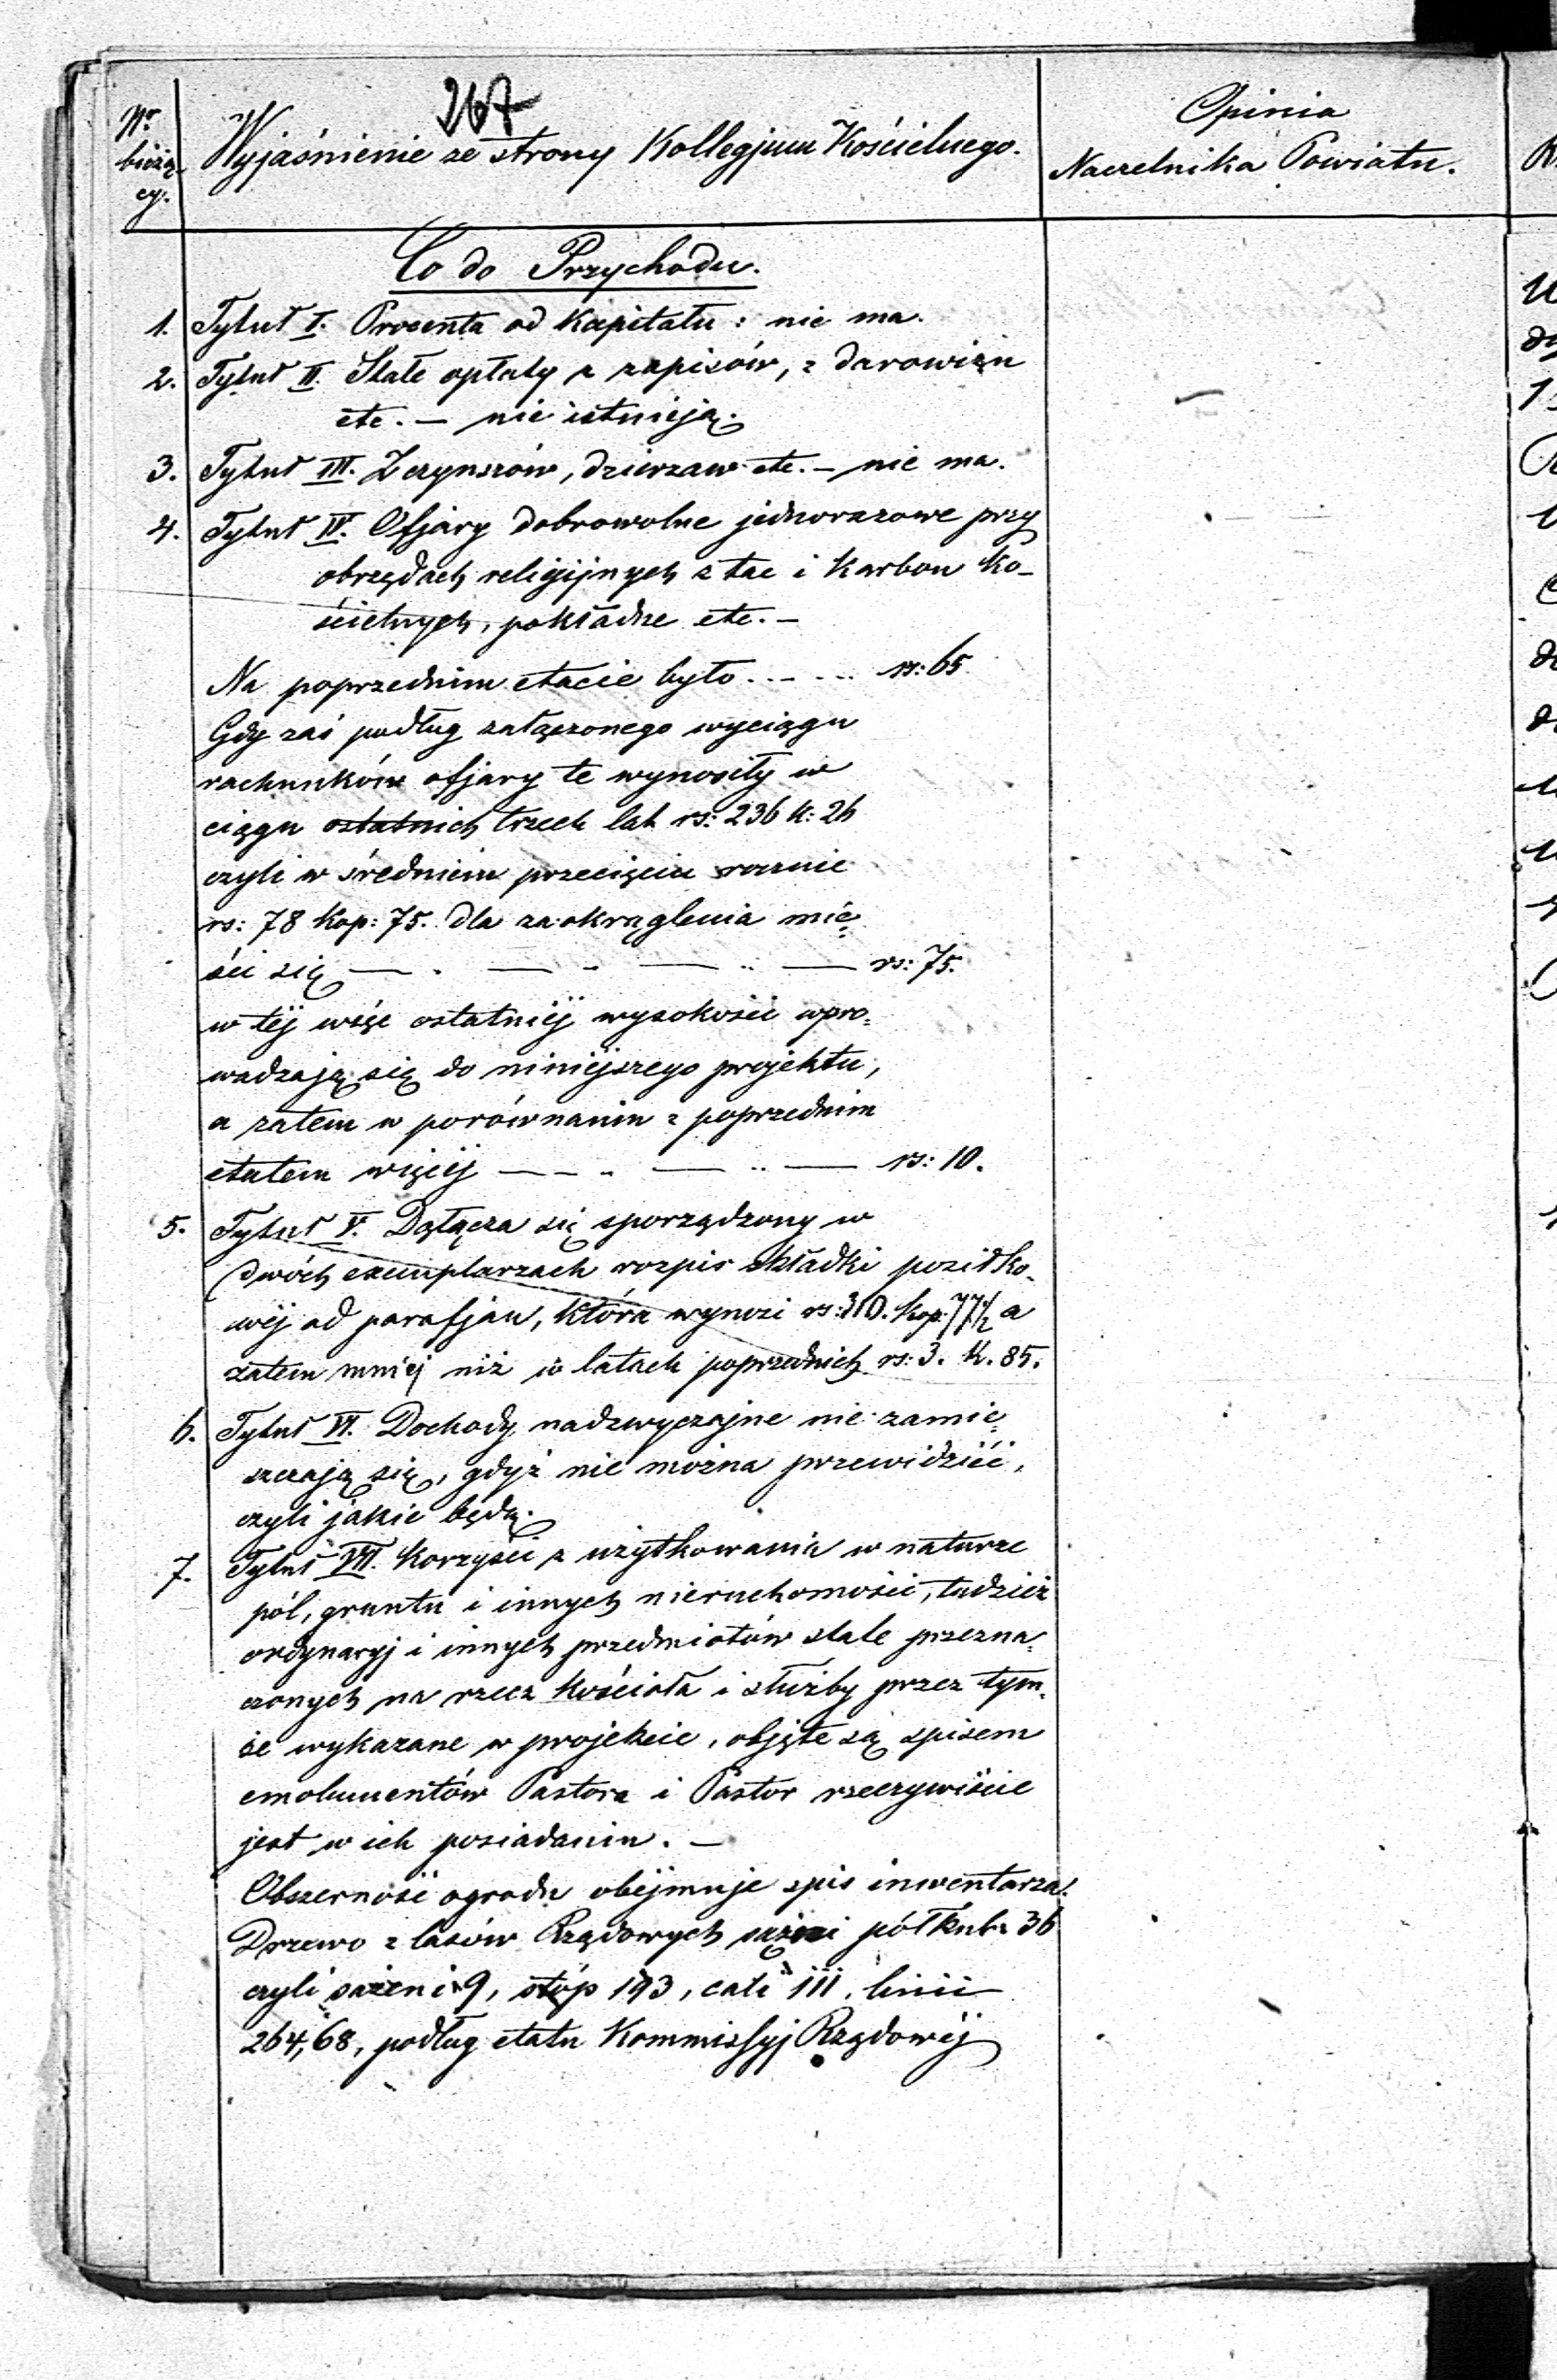 267
Nr
bieżą-
cy.
Wyjaśnienie ze strony Kollegjum Kościelnego.
Opinia
Naczelnika Powiatu.
Co do Przychodu.
1. Tytuł I. Procenta od Kapitału: nie ma.
2. Tytuł II. Stałe opłaty z zapisów, z darowizn
etc. — nie istnieją.
3. Tytuł III. Z czynszów, dzierzaw etc. — nie ma.
4. Tytuł IV. Ofjary dobrowolne jednorazowe przy
obrzędach religijnych z tac i karbon ko-
ścielnych, pokładne etc. —
Na poprzednim etacie było . . — . . . rs: 65
Gdy zaś podług załączonego wyciągu
rachunków ofjary te wynosiły w
ciągu ostatnich trzech lat rs: 236 k: 26
czyli w średniem przecięciu rocznie
rs: 78 Kop: 75. dla zaokrąglenia mie-
ści się — . — . — .. — rs: 75.
w téj więc ostatniéj wysokości wpro-
wadzają się do niniéjszego projektu,
a zatem w porównaniu z poprzednim
etatem więcéj — — .. — .. — rs: 10.
5. Tytuł V. Dołącza się sporządzony w
dwóch exemplarzach rozpis składki posiłko-
wéj od parafjan, która wynosi rs: 310. kop. 77½ a
zatem mniéj niż w latach poprzednich rs: 3. k. 85.
6. Tytuł VI. Dochody nadzwyczajne nie zamie-
szczają się, gdyż nie można przewidzieć,
czyli jakie będą.
7. Tytuł VII. Korzyści z użytkowania w naturze
pól, gruntu i innych nieruchomości, tudzież
ordynaryj i innych przedmiotów stale przezna-
czonych na rzecz Kościoła i służby przez tym-
że wykazane w projekcie, objęte są spisem
emolumentów Pastora i Pastor rzeczywiście
jest w ich posiadaniu. —
Obszerność ogrodu obéjmuje spis inwentarza.
Drzewo z lasów Rządowych sążni półkub: 36
czyli sążeni 9, stóp 193, cali 111, linii
264,68, podług etatu Kommissyj Rządowéj